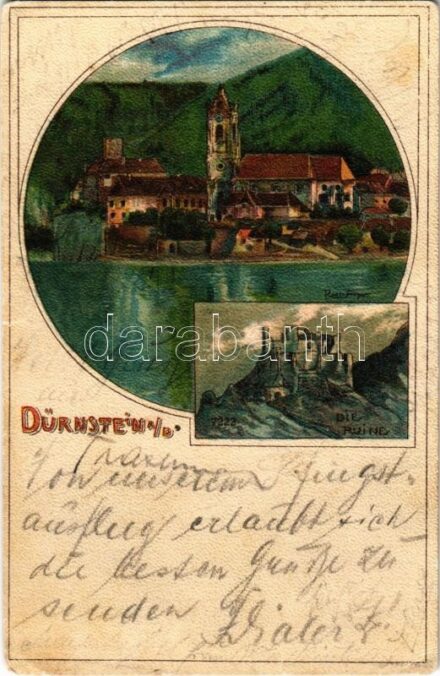 darabanth
7222
DIE
RUINE
DÜRNSTEIN a/D.
Von unserem Pfingst-
ausflug erlaubt sich
die besten Grüße zu
senden